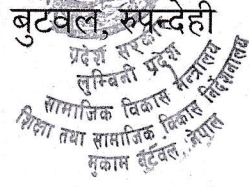 बुटवल, रुपन्देही
प्रदेश सरकार
लुम्बिनी प्रदेश
सामाजिक विकास मन्त्रालय
शिक्षा तथा सामाजिक विकास निर्देशनालय
मुकाम बुटवल, नेपाल